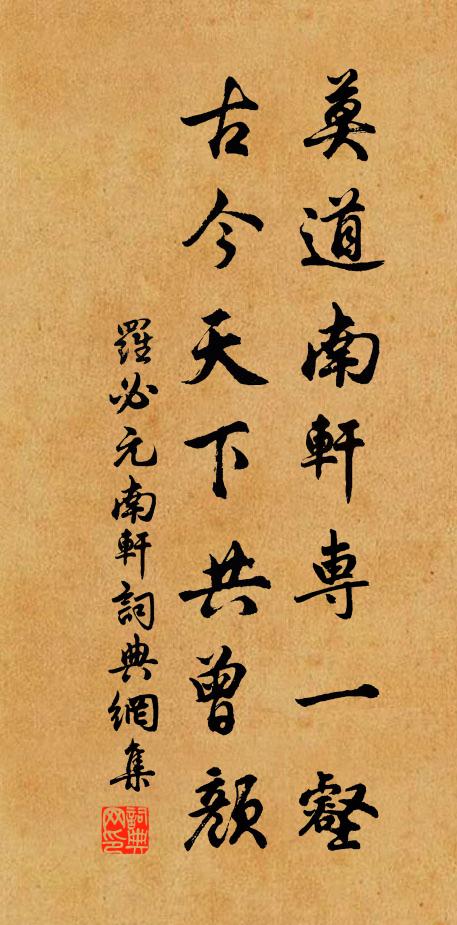 莫道南軒専一壑
古今天下共曾顏
羅必元南軒詞典網集
詞典网印